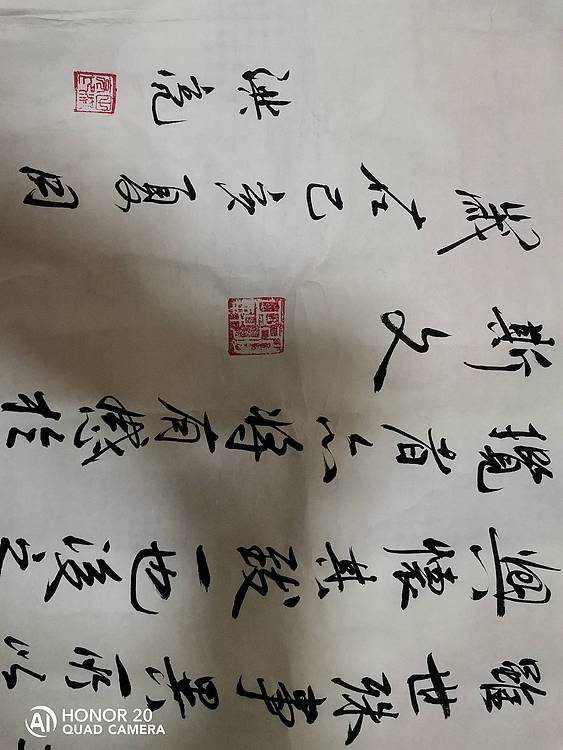 雖世殊事異所以
興懷其致一也後之
攬者亦將有感於
斯文
歲在己亥夏
洪亮
HONOR 20
QUAD CAMERA